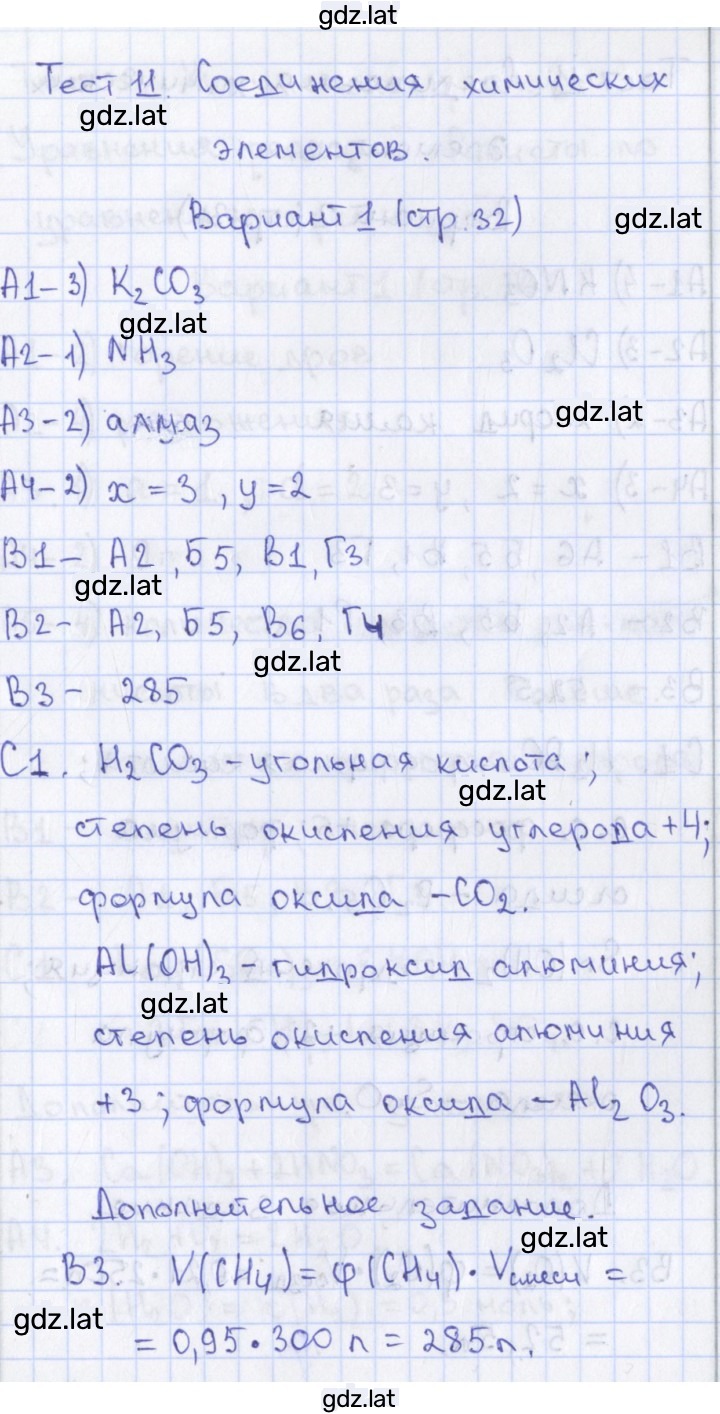 gdz.lat
Тест 11. Соединения химических
gdz.lat
элементов.
Вариант 1 (стр. 32)
gdz.lat
А1 – 3) K₂CO₃
gdz.lat
А2 – 1) NH₃
А3 – 2) алмаз
gdz.lat
А4 – 2) x = 3, y = 2
В1 – А2, Б5, В1, Г3
gdz.lat
В2 – А2, Б5, В6, Г4
gdz.lat
В3 – 285
С1. H₂CO₃ – угольная кислота;
gdz.lat
степень окисления углерода +4;
формула оксида – CO₂.
Al(OH)₃ – гидроксид алюминия;
gdz.lat
степень окисления алюминия
+3; формула оксида – Al₂O₃.
Дополнительное задание.
gdz.lat
В3. V(CH₄) = φ(CH₄) · Vсмеси =
gdz.lat
= 0,95 · 300 л = 285 л.
gdz.lat